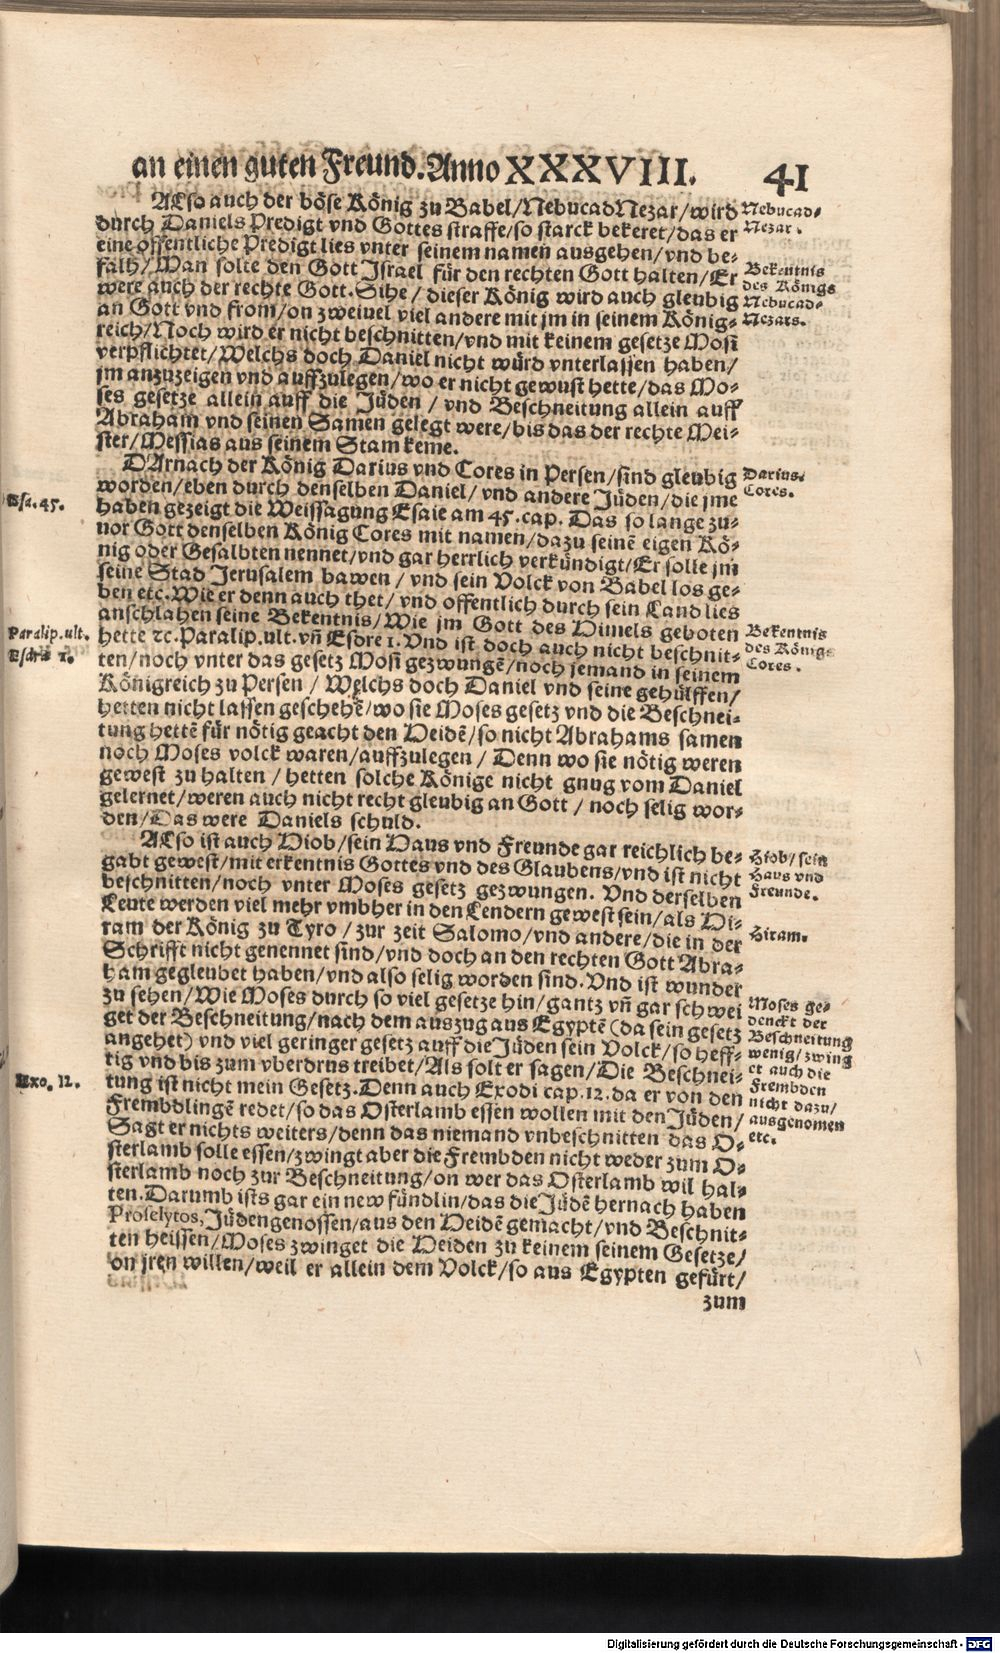 an einen guten Freund. Anno XXXVIII. 41
ALso auch der böse König zu Babel/NebucadNezar/wird
durch Daniels Predigt vnd Gottes straffe/so starck bekeret/das er
eine offentliche Predigt lies vnter seinem namen ausgehen/vnd be-
falh/Man solte den Gott Israel für den rechten Gott halten/Er
were auch der rechte Gott. Sihe/dieser König wird auch gleubig
an Gott vnd from/on zweiuel viel andere mit jm in seinem König-
reich/Noch wird er nicht beschnitten/vnd mit keinem gesetze Mosi
verpflichtet/Welchs doch Daniel nicht würd vnterlassen haben/
jm anzuzeigen vnd auffzulegen/wo er nicht gewust hette/das Mo-
ses gesetze allein auff die Jüden/vnd Beschneitung allein auff
Abraham vnd seinen Samen gelegt were/bis das der rechte Mei-
ster/Messias aus seinem Stam keme.
DArnach der König Darius vnd Cores in Persen/sind gleubig
worden/eben durch denselben Daniel/vnd andere Jüden/die jme
haben gezeigt die Weissagung Esaie am 45. cap. Das so lange zu-
uor Gott denselben König Cores mit namen/dazu seinē eigen Kö-
nig oder Gesalbten nennet/vnd gar herrlich verkündigt/Er solle jm
seine Stad Jerusalem bawen/vnd sein Volck von Babel los ge-
ben etc. Wie er denn auch thet/vnd offentlich durch sein Land lies
anschlahen seine Bekentnis/Wie jm Gott des Himels geboten
hette ꝛc. Paralip. ult. vn̄ Esdre 1. Vnd ist doch auch nicht beschnit-
ten/noch vnter das gesetz Mosi gezwungē/noch jemand in seinem
Königreich zu Persen/Welchs doch Daniel vnd seine gehülffen/
hetten nicht lassen geschehē/wo sie Moses gesetz vnd die Beschnei-
tung hettē für nötig geacht den Heidē/so nicht Abrahams samen
noch Moses volck waren/auffzulegen/Denn wo sie nötig weren
gewest zu halten/hetten solche Könige nicht gnug vom Daniel
gelernet/weren auch nicht recht gleubig an Gott/noch selig wor-
den/Das were Daniels schuld.
ALso ist auch Hiob/sein Haus vnd Freunde gar reichlich be-
gabt gewest/mit erkentnis Gottes vnd des Glaubens/vnd ist nicht
beschnitten/noch vnter Moses gesetz gezwungen. Vnd derselben
Leute werden viel mehr vmbher in den Lendern gewest sein/als Hi-
ram der König zu Tyro/zur zeit Salomo/vnd andere/die in der
Schrifft nicht genennet sind/vnd doch an den rechten Gott Abra-
ham gegleubet haben/vnd also selig worden sind. Vnd ist wunder
zu sehen/Wie Moses durch so viel gesetze hin/gantz vn̄ gar schwei
get der Beschneitung/nach dem auszug aus Egyptē (da sein gesetz
angehet) vnd viel geringer gesetz auff die Jüden sein Volck/so heff-
tig vnd bis zum vberdrus treibet/Als solt er sagen/Die Beschnei-
tung ist nicht mein Gesetz. Denn auch Exodi cap. 12. da er von den
Frembdlingē redet/so das Osterlamb essen wollen mit den Jüden/
Sagt er nichts weiters/denn das niemand vnbeschnitten das O-
sterlamb solle essen/zwingt aber die Frembden nicht weder zum O-
sterlamb noch zur Beschneitung/on wer das Osterlamb wil hal-
ten. Darumb ists gar ein new fündlin/das die Jüdē hernach haben
Proselytos, Jüdengenossen/aus den Heidē gemacht/vnd Beschnit-
ten heissen/Moses zwinget die Heiden zu keinem seinem Gesetze/
on jren willen/weil er allein dem Volck/so aus Egypten gefürt/
zum
Nebucad-
Nezar.
Bekentnis
des Königs
Nebucad-
Nezars.
Esa. 45.
Darius.
Cores.
Paralip. ult.
Esdre 1.
Bekentnis
des Königs
Cores.
Hiob/sein
Haus vnd
Freunde.
Hiram.
Moses ge-
denckt der
Beschneitung
wenig/zwing
et auch die
Frembden
nicht dazu/
ausgenomen
etc.
Exo. 12.
Digitalisierung gefördert durch die Deutsche Forschungsgemeinschaft - DFG